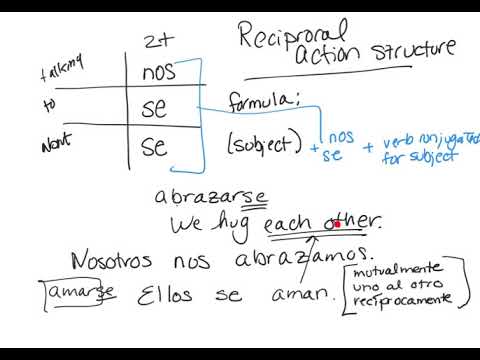 Reciprocal
action structure
2+
talking nos
to se
About se
formula:
(subject) + nos + verb conjugated
se for subject
abrazarse
We hug each other.
Nosotros nos abrazamos.
amarse Ellos se aman.
mutualmente
uno al otro
recíprocamente